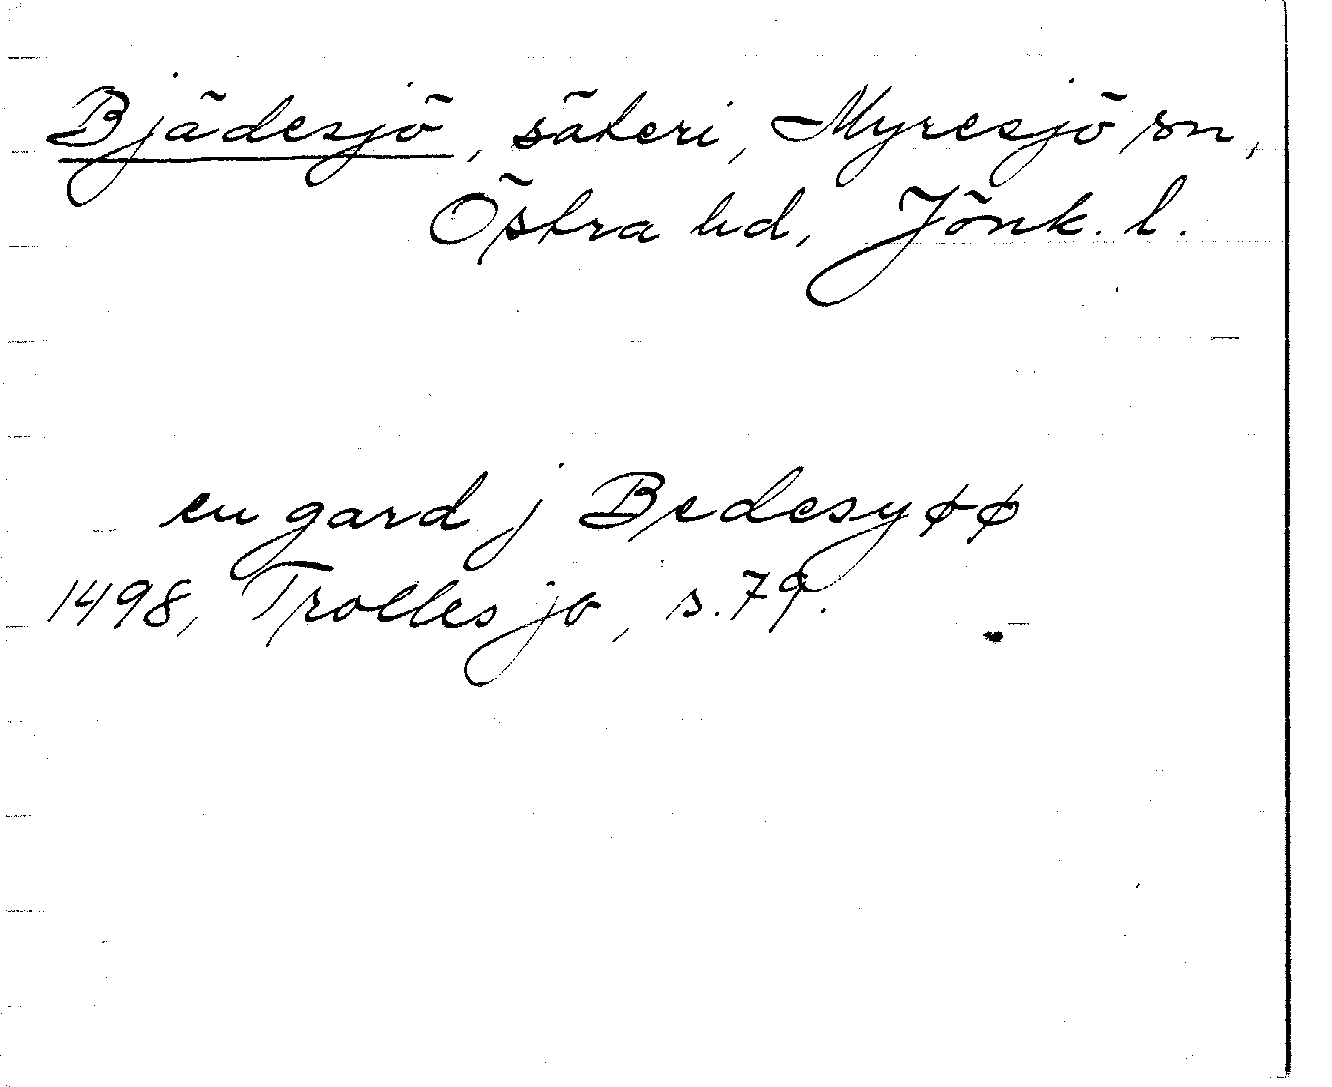 Bjädesjö, säteri, Myresjö sn,
Östra hd, Jönk. l.
en gard j Bedesyøø
1498, Trolles jo, s. 79.